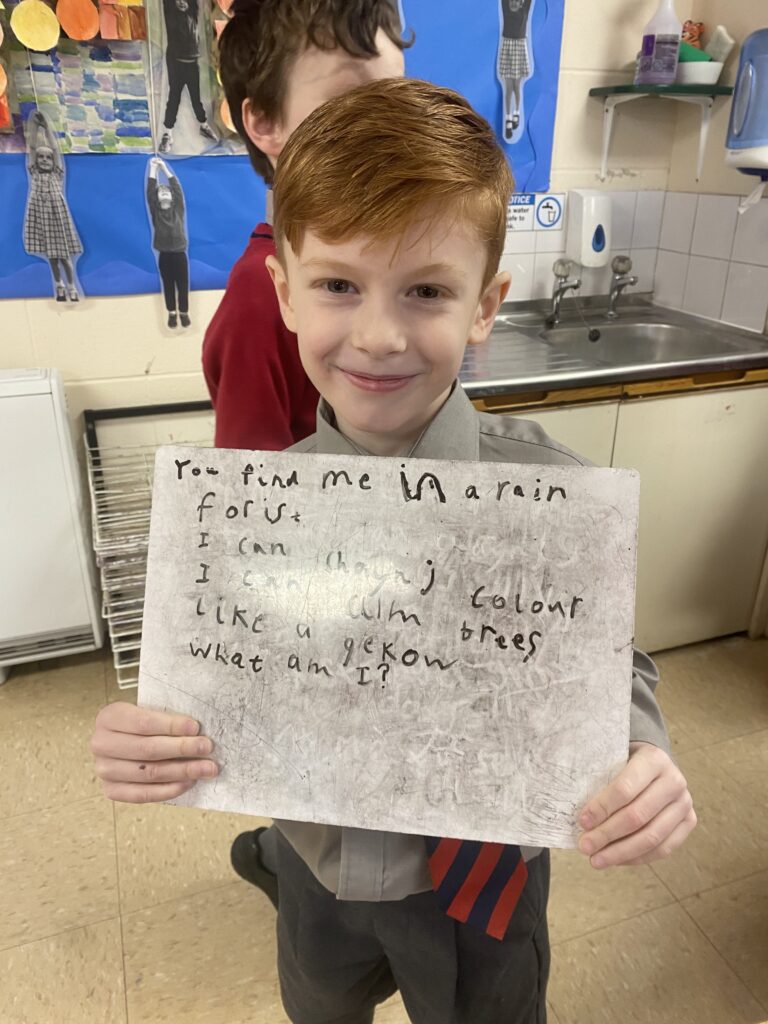 You find me in a rain
forist
I can chaynj colour
I can clim trees
like a gekow
what am I?
NOTICE